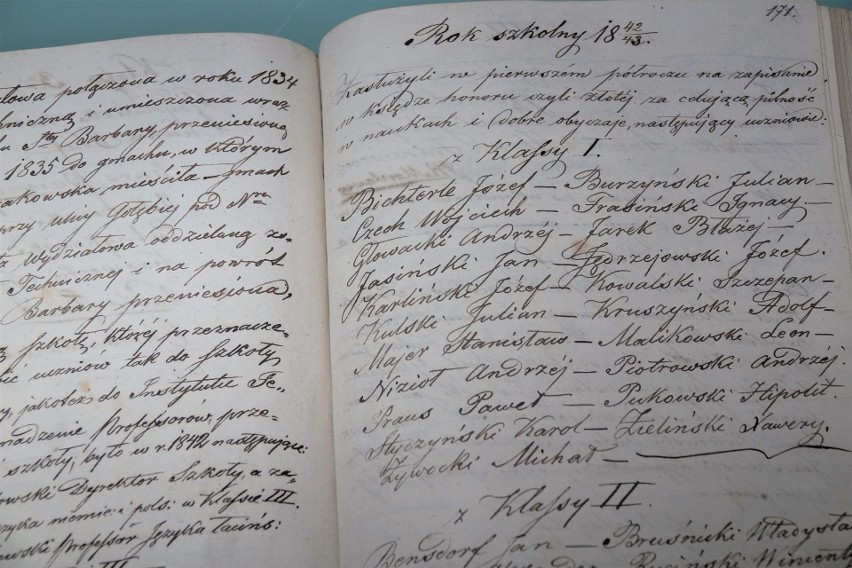 łowa połączona w roku 1834
hniczną i umieszczona wraz
Barbary, przeniesioną
1835 do gmachu, w którym
akowska mieściła – gmach
przy ulicy Gołębiej pod Nre
ła wydziałowa oddzieloną zo-
Technicznej i na powrót
Barbary przeniesiona,
szkoły, któréj przeznacze-
uczniów tak do szkoły
jakoteż do Instytutu Te-
Professorów, prze-
szkoły, było w r. 1842 następujące:
owski Dyrektor Szkoły, a za-
języka niemic: i pols: w Klassie III.
ewski Professór Języka łacińs:
III
171.
Rok szkolny 18 42/43.
Zasłużyli w pierwszém półroczu na zapisanie
w księdze honoru czyli złotéj za celującą pilność
w naukach i dobre obyczaje, następujący uczniowie:
z Klassy I.
Bichterle Józef – Burzyński Julian –
Czech Wojciech – Frasiński Ignacy. –
Głowacki Andrzéj – Jarek Błażéj –
Jasiński Jan – Jędrzejowski Józef.
Karliński Józef – Kowalski Szczepan –
Kulski Julian – Kruszyński Adolf –
Majer Stanisław – Malikowski Leon –
Nizioł Andrzéj – Piotrowski Andrzéj.
Praus Paweł – Pukowski Hipolit.
Styczyński Karol – Zieliński Xawery.
Żywocki Michał –
z Klassy II.
Bensdorf Jan – Bruśnicki Władysła
Ruciński Wincenty